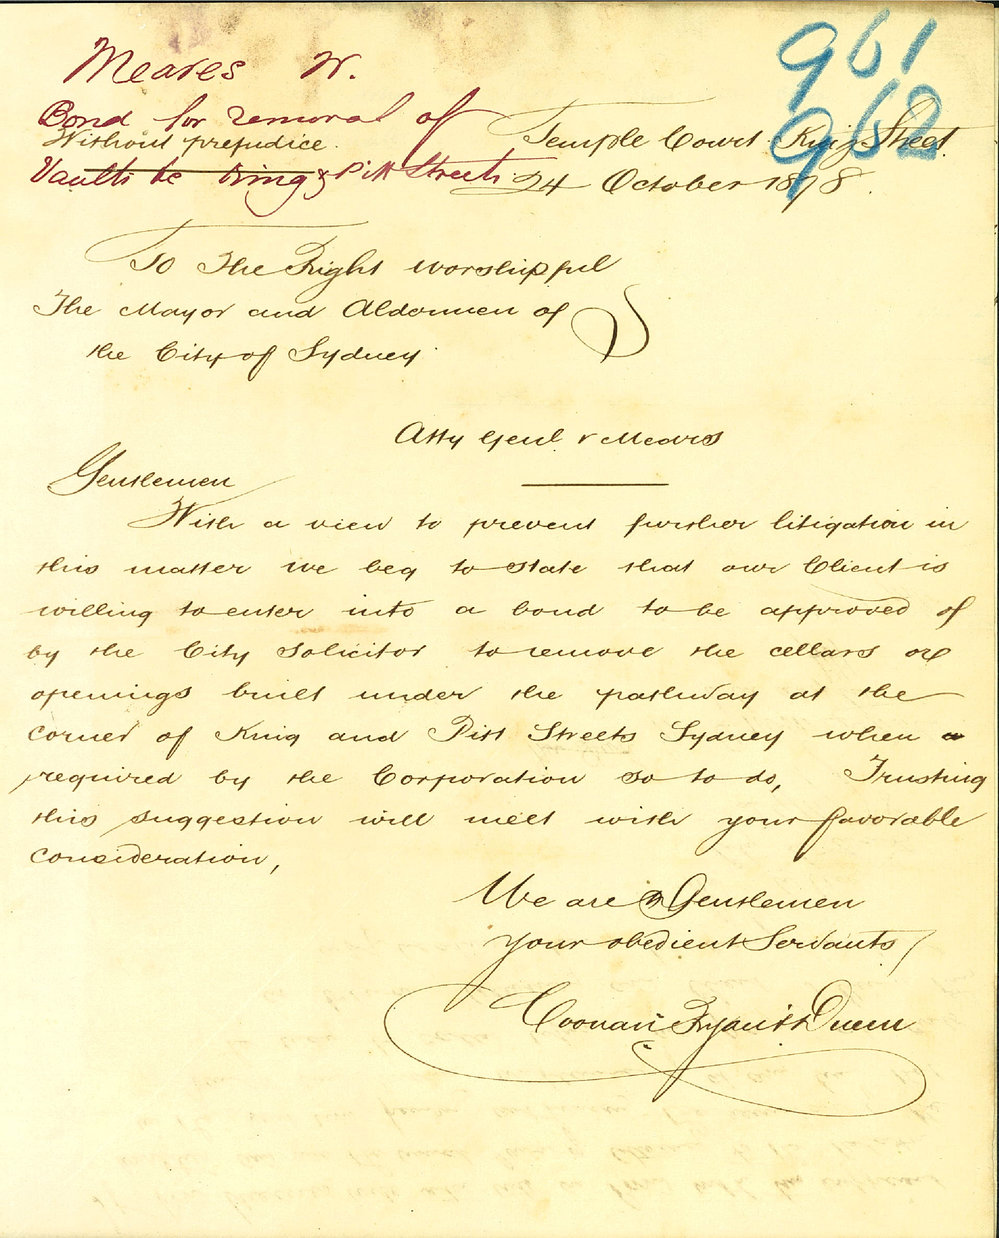 961
962
Meares W.
Bond for removal of
Vaults &c King & Pitt Streets
Without prejudice.
Temple Court King Street
24 October 1878.
To The Right Worshipful
The Mayor and Aldermen of
the City of Sydney
Atty Genl v Meares
Gentlemen
With a view to prevent further litigation in
this matter we beg to state that our Client is
willing to enter into a bond to be approved of
by the City Solicitor to remove the cellars or
openings built under the pathway at the
corner of King and Pitt Streets Sydney when
required by the Corporation so to do, Trusting
this suggestion will meet with your favorable
consideration,
We are Gentlemen
Your obedient Servants